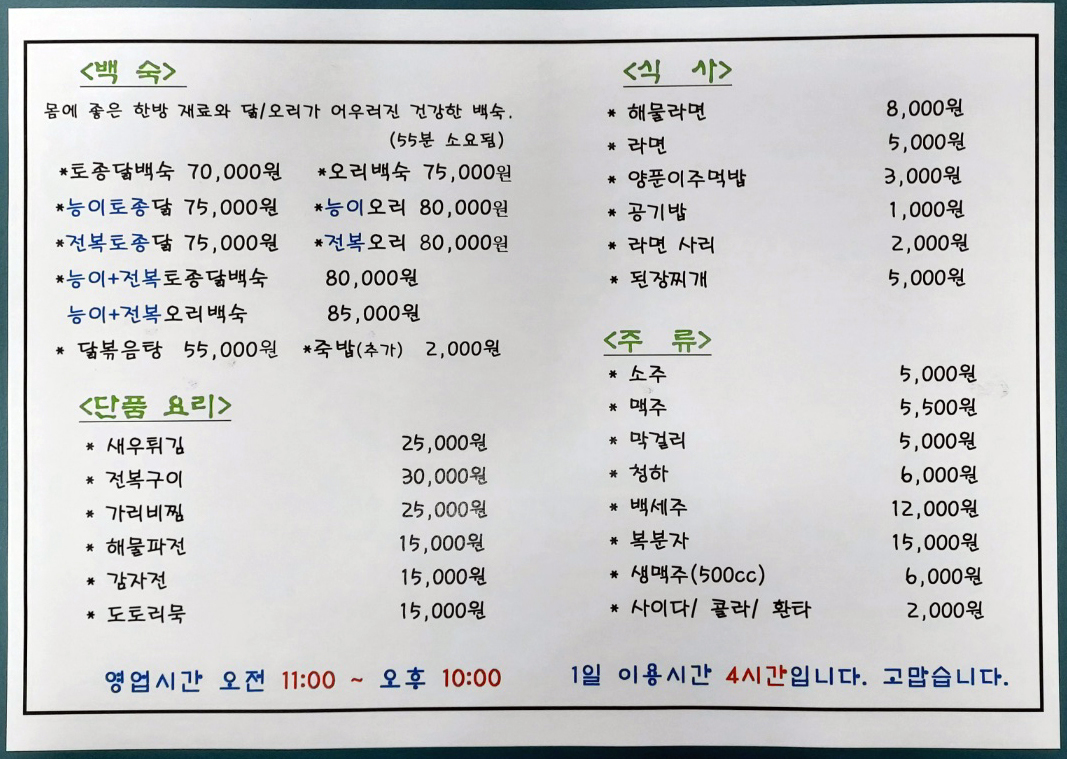 <백 숙>
몸에 좋은 한방 재료와 닭/오리가 어우러진 건강한 백숙.
(55분 소요됨)
*토종닭백숙 70,000원 *오리백숙 75,000원
*능이토종닭 75,000원 *능이오리 80,000원
*전복토종닭 75,000원 *전복오리 80,000원
*능이+전복토종닭백숙 80,000원
능이+전복오리백숙 85,000원
* 닭볶음탕 55,000원 *죽밥(추가) 2,000원
<단품 요리>
* 새우튀김 25,000원
* 전복구이 30,000원
* 가리비찜 25,000원
* 해물파전 15,000원
* 감자전 15,000원
* 도토리묵 15,000원
영업시간 오전 11:00 ~ 오후 10:00
<식 사>
* 해물라면 8,000원
* 라면 5,000원
* 양푼이주먹밥 3,000원
* 공기밥 1,000원
* 라면 사리 2,000원
* 된장찌개 5,000원
<주 류>
* 소주 5,000원
* 맥주 5,500원
* 막걸리 5,000원
* 청하 6,000원
* 백세주 12,000원
* 복분자 15,000원
* 생맥주(500cc) 6,000원
* 사이다/ 콜라/ 환타 2,000원
1일 이용시간 4시간입니다. 고맙습니다.